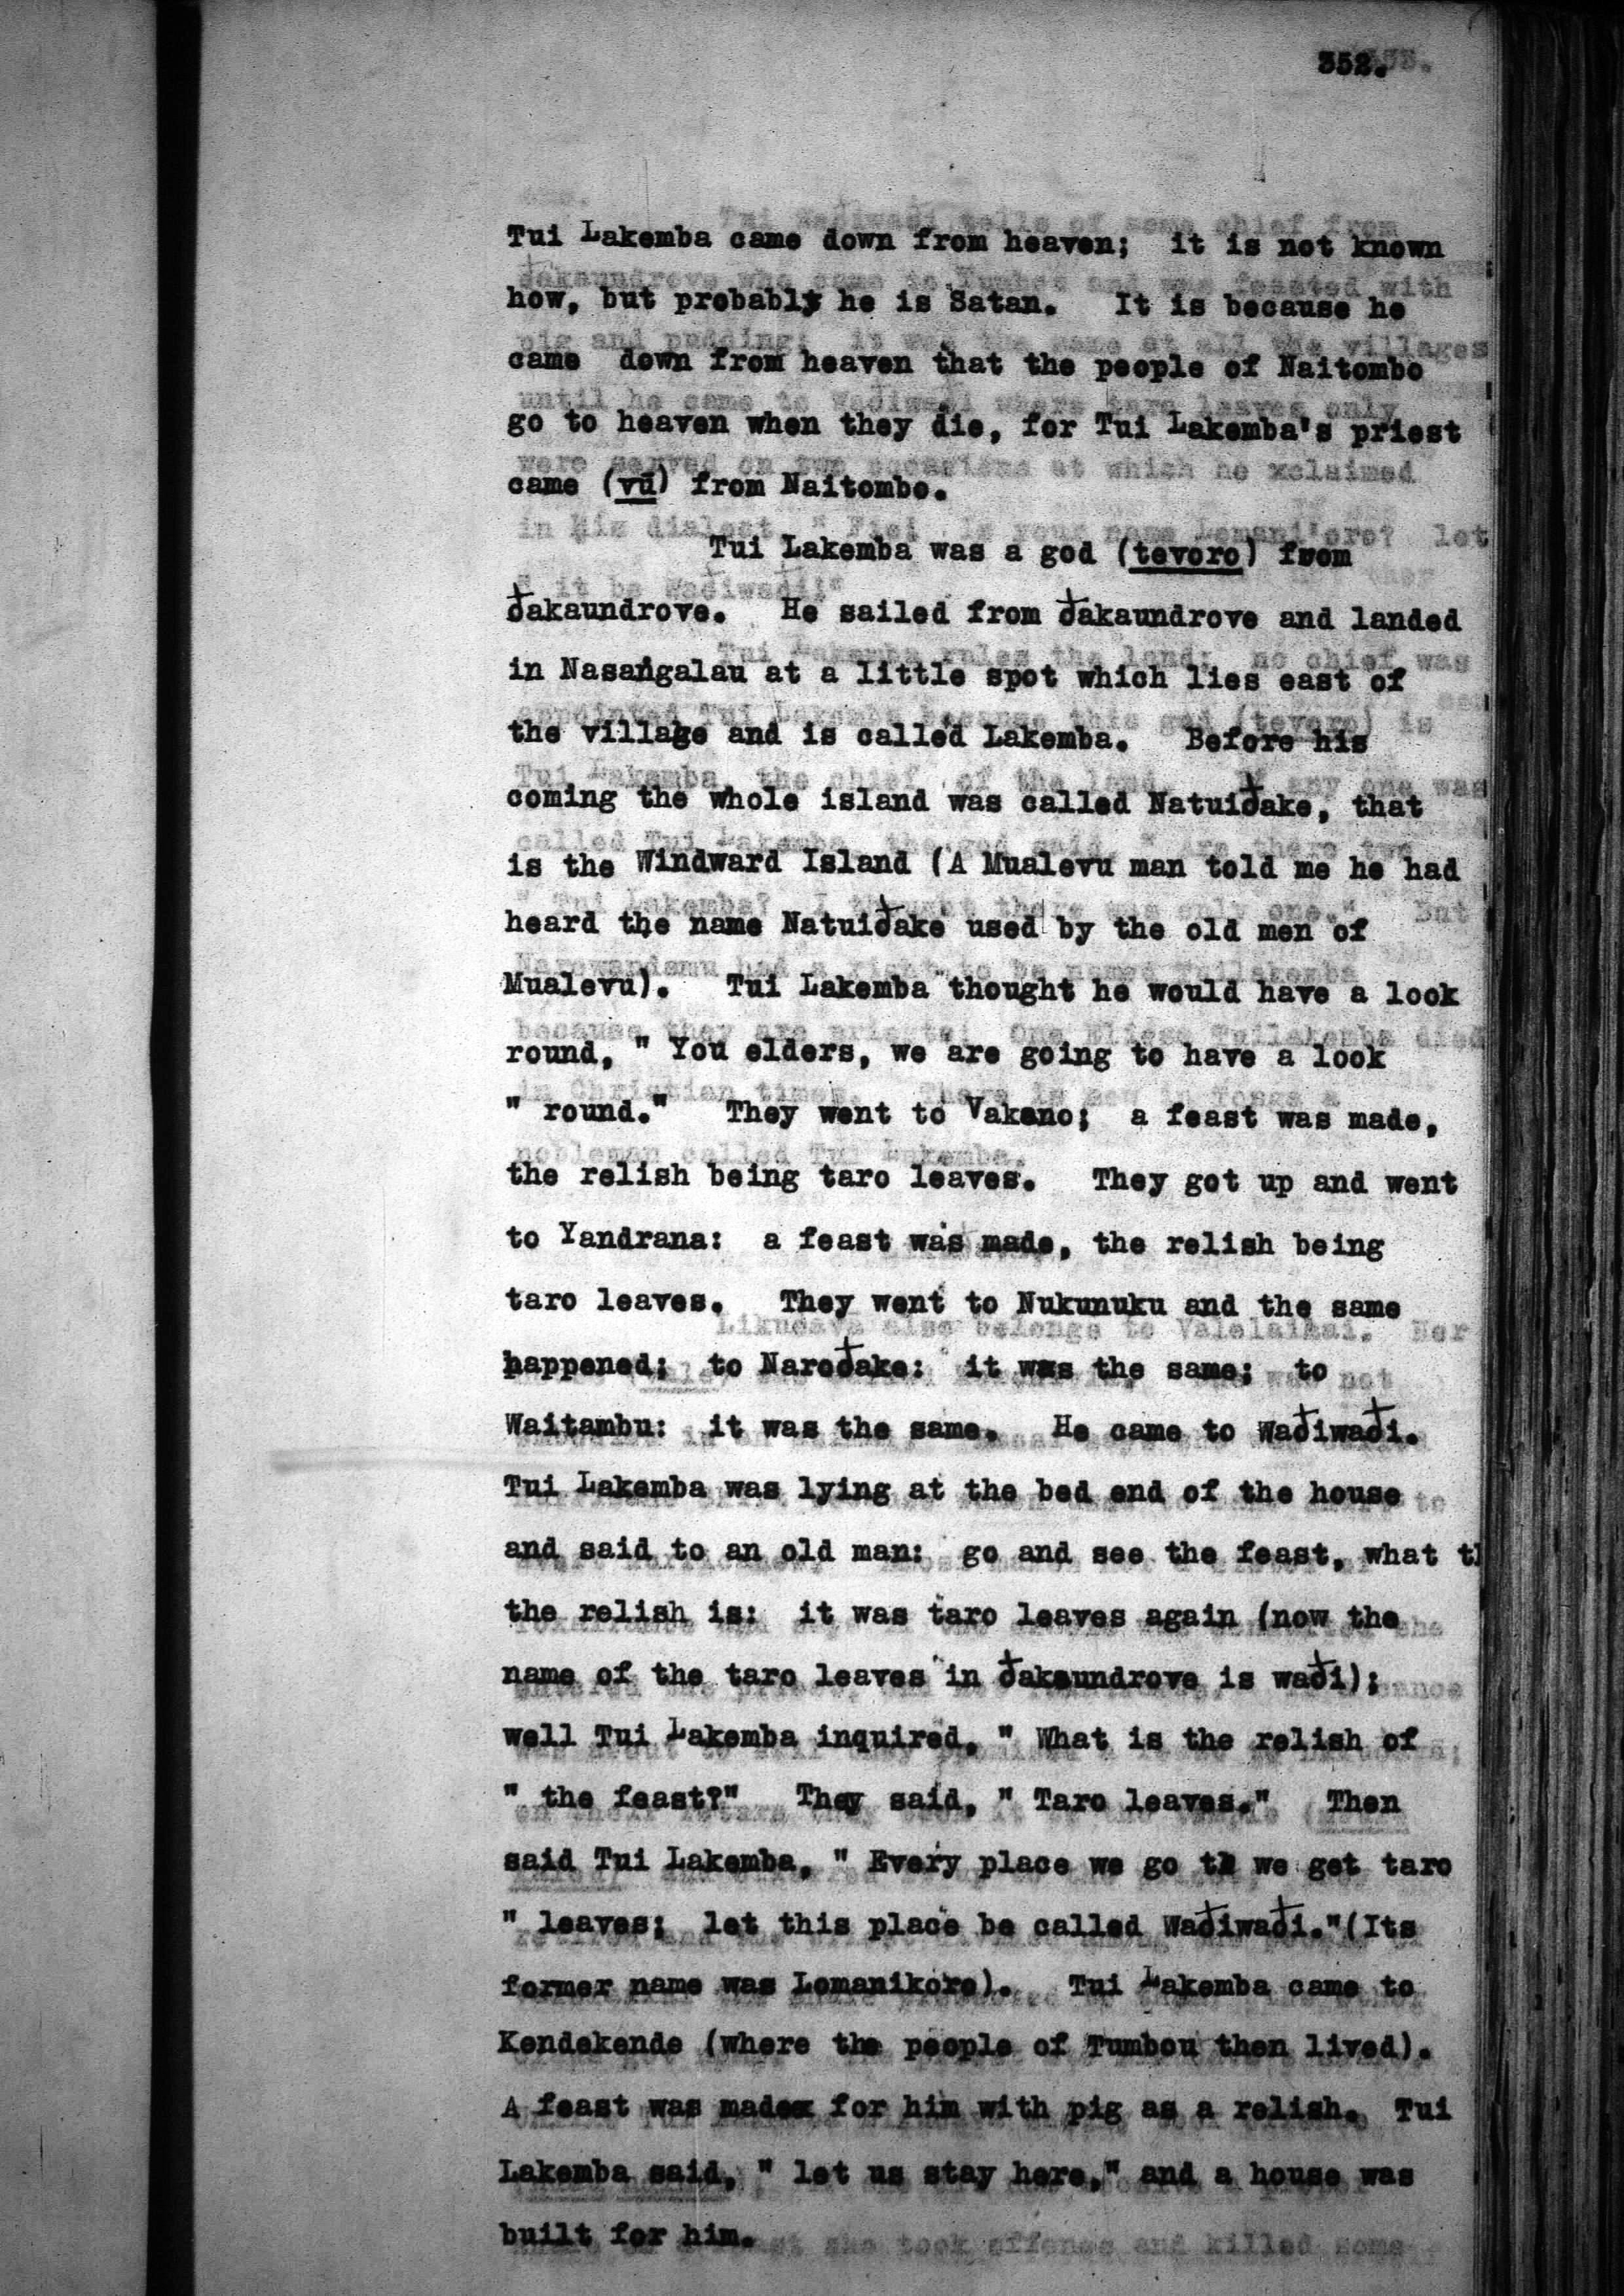 352.
Tui Lakemba came down from heaven; it is not known
how, but probably he is Satan. It is because he
came down from heaven that the people of Naitombo
go to heaven when they die, for Tui Lakemba's priest
came (vū) from Naitombo.
Tui Lakemba was a god (tevoro) from
ðakaundrove. He sailed from ðakaundrove and landed
in Nasaṅgalau at a little spot which lies east of
the village and is called Lakemba. Before his
coming the whole island was called Natuiðake, that
is the Windward Island (A Mualevu man told me he had
heard the name Natuiðake used by the old men of
Mualevu). Tui Lakemba thought he would have a look
round, " You elders, we are going to have a look
" round." They went to Vakano; a feast was made,
the relish being taro leaves. They got up and went
to Yandrana: a feast was made, the relish being
taro leaves. They went to Nukunuku and the same
happened; to Naroðake: it was the same; to
Waitambu: it was the same. He came to Waðiwaði.
Tui Lakemba was lying at the bed end of the house
and said to an old man: go and see the feast, what th
the relish is: it was taro leaves again (now the
name of the taro leaves in ðakaundrove is waði);
well Tui Lakemba inquired, " What is the relish of
" the feast?" They said, " Taro leaves." Then
said Tui Lakemba, " Every place we go to we get taro
" leaves; let this place be called Waðiwaði."(Its
former name was Lomanikoro). Tui Lakemba came to
Kendekende (where the people of Tumbou then lived).
A feast was made for him with pig as a relish. Tui
Lakemba said, " let us stay here," and a house was
built for him.